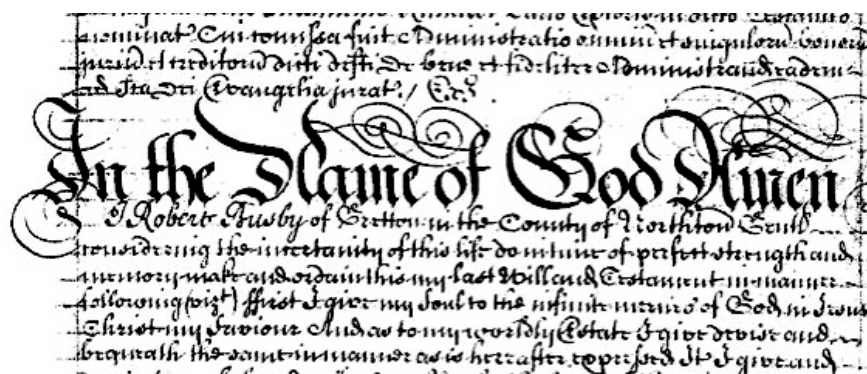 nominat. Cui comissa fuit Administratio omniu et singuloru bonoru
juriu et creditoru dicti defti De bene et fideliter Administrand eadem
ad sta Dei Evangelia jurat. / Ex.
In the Name of God Amen
I Robert Busby of Gretton in the County of Northton Gentl
considering the incertainty of this life do in time of perfect strength and
memory make and ordain this my last Will and Testament in manner
following (vizt) ffirst I give my Soul to the infinite mercies of God in Jesus
Christ my Saviour And as to my worldly Estate I give devise and
bequeath the same in manner as is hereafter expressed It I give and